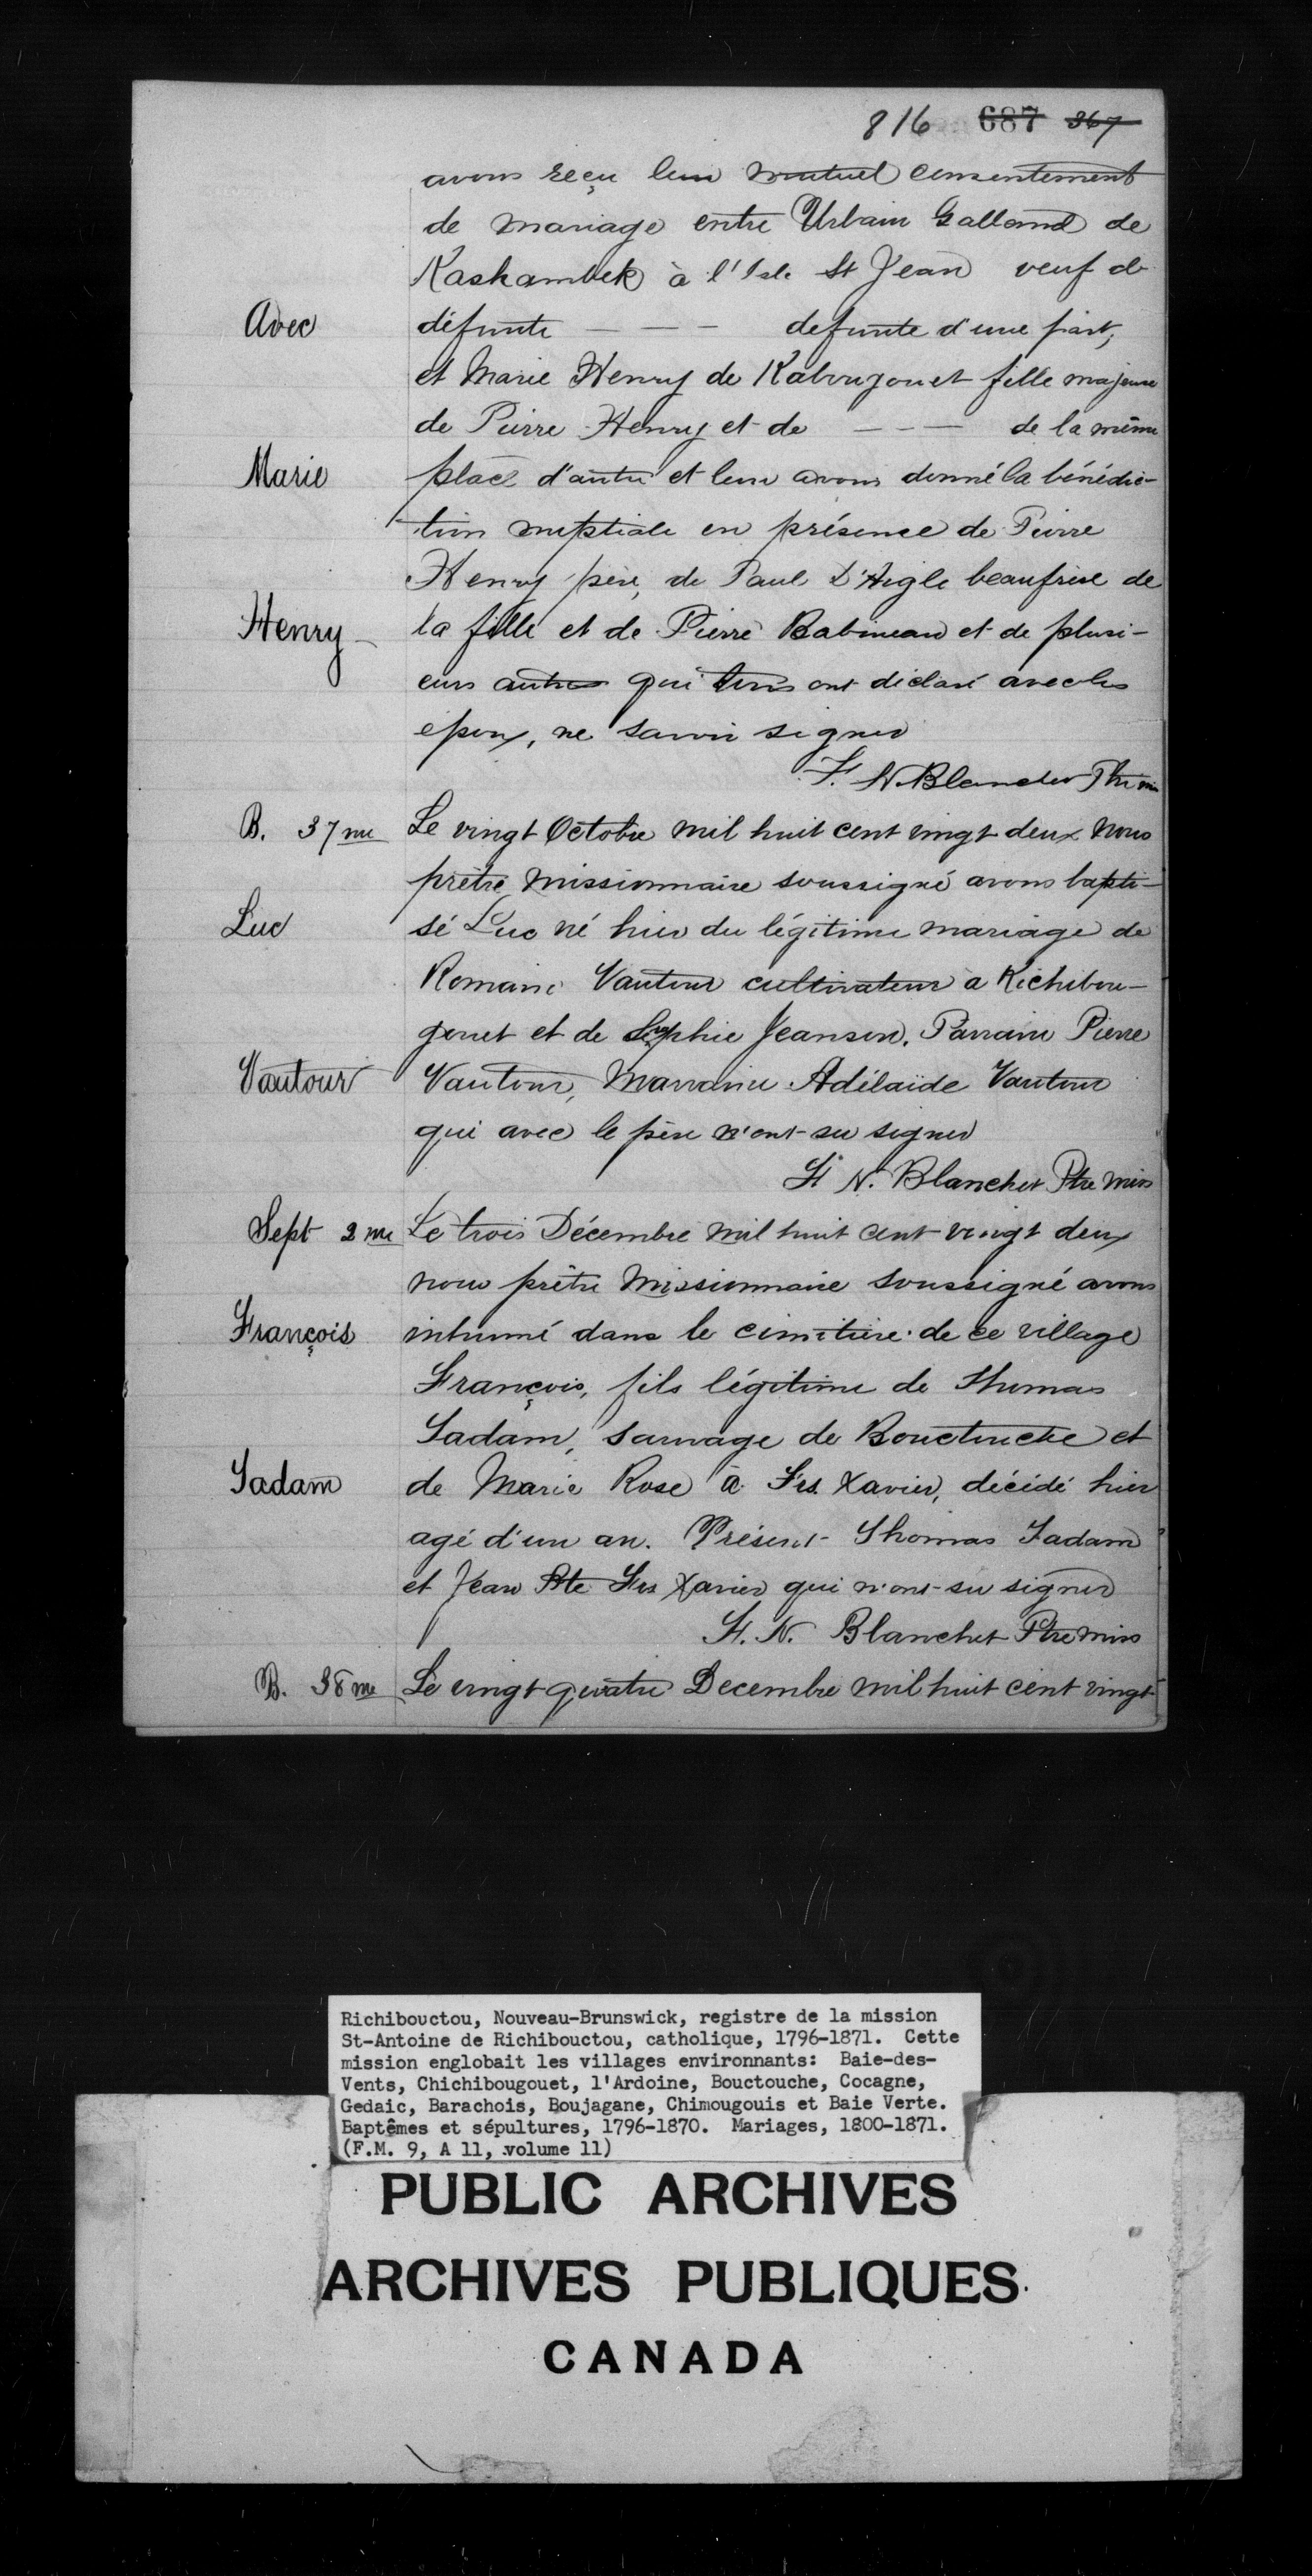 816 687 367
avons reçu leur mutuel consentement
de mariage entre Urbain Galland de
Kaskambek à l'Isle St Jean veuf de
Avec défunte — — — defunte d'une part,
et Marie Henry de Kabougouet fille majeure
de Pierre Henry et de — — — de la même
Marie place d'autre et leur avons donné la bénédic-
tion nuptiale en présence de Pierre
Henry père, de Paul D'Aigle beaufrère de
Henry la fille et de Pierre Babineau et de plusi-
eurs autres qui tous ont déclaré avec les
epoux, ne savoir signer
F. N. Blanchet Ptre mis
B. 37me Le vingt Octobre mil huit cent vingt deux nous
prêtre missionnaire soussigné avons bapti-
Luc sé Luc né hier du légitime mariage de
Romain Vautour cultivateur a Richibou-
gouet et de Sophie Jeanson. Parrain Pierre
Vautour Vautour, Marraine Adélaïde Vautour
qui avec le père n'ont su signer
F. N. Blanchet Ptre Miss
Sept 2me Le trois Décembre mil huit cent vingt deux
nous prêtre Missionnaire soussigné avons
François inhumé dans le cimitière de ce village
François, fils légitime de Thomas
Tadam, sauvage de Bouctuche et
Tadam de Marie Rose à Frs. Xavier, décédé hier
agé d'un an. Présent Thomas Tadam
et Jean Bte Frs Xavier qui n'ont su signer
F. N. Blanchet Ptre Miss
B. 38me Le vingt quatre Decembre mil huit cent vingt
Richibouctou, Nouveau-Brunswick, registre de la mission
St-Antoine de Richibouctou, catholique, 1796-1871. Cette
mission englobait les villages environnants: Baie-des-
Vents, Chichibougouet, l'Ardoine, Bouctouche, Cocagne,
Gedaic, Barachois, Boujagane, Chimougouis et Baie Verte.
Baptêmes et sépultures, 1796-1870. Mariages, 1800-1871.
(F.M. 9, A 11, volume 11)
PUBLIC ARCHIVES
ARCHIVES PUBLIQUES
CANADA